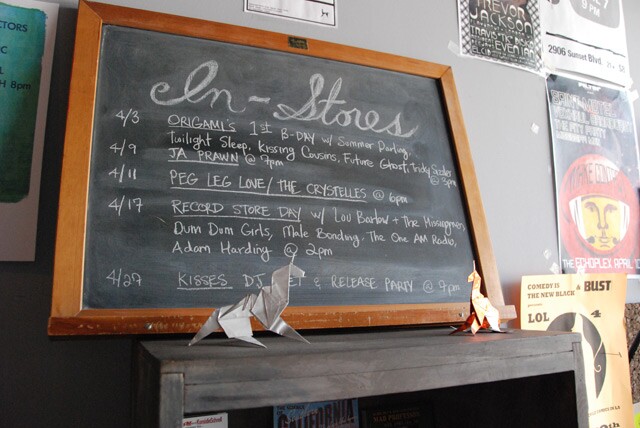 In-Stores
4/3 ORIGAMI'S 1st B-DAY w/ Summer Darling,
Twilight Sleep, Kissing Cousins, Future Ghost, Tricky
@ 3pm
4/9 JA PRAWN @ 7pm
4/11 PEG LEG LOVE / THE CRYSTELLES @ 6pm
4/17 RECORD STORE DAY w/ Lou Barlow + The Missingmen
Dum Dum Girls, Male Bonding, The One AM Radio,
Adam Harding @ 2pm
4/27 KISSES DJ SET & RELEASE PARTY @ 9pm
TREVOR
JACKSON
8 PM
2906 Sunset Blvd.
THE ECHOPLEX APRIL
COMEDY IS
THE NEW BLACK
BUST
LOL 4
CALIFORNIA
8pm